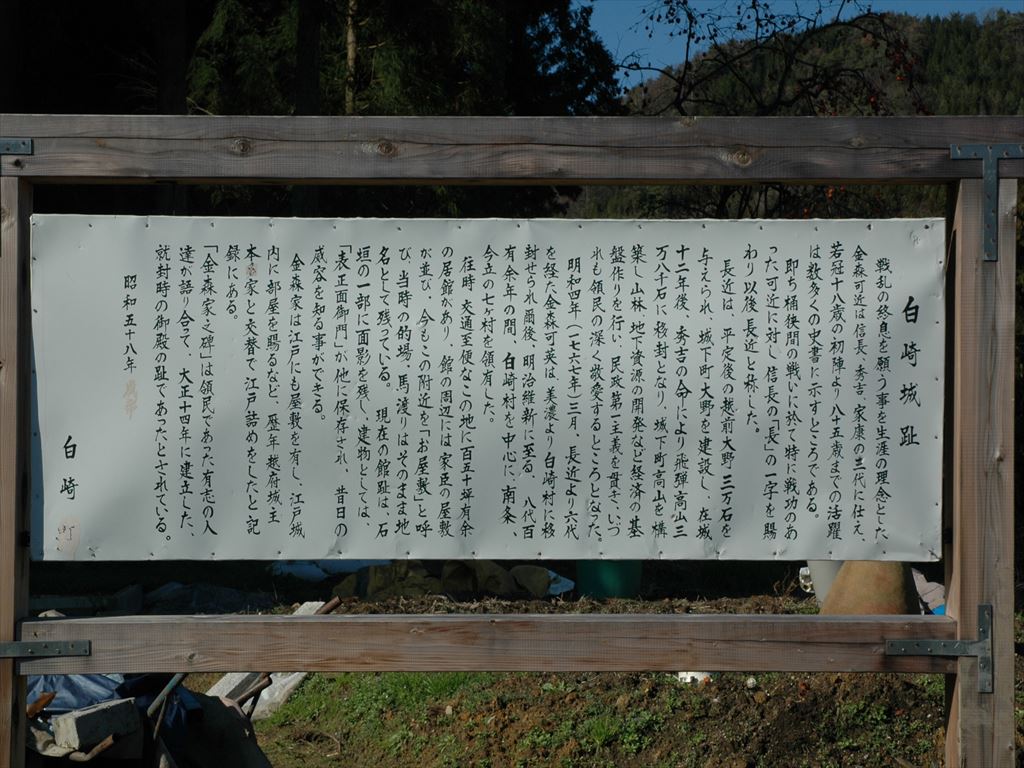 白崎城趾
戦乱の終息を願う事を生涯の理念とした
金森可近は信長、秀吉、家康の三代に仕え、
若冠十八歳の初陣より八十五歳までの活躍
は数多くの史書に示すところである。
即ち桶狭間の戦いに於て特に戦功のあ
った可近に対し信長の「長」の一字を賜
わり以後長近と称した。
長近は、平定後の越前大野三万石を
与えられ、城下町大野を建設し、在城
十二年後、秀吉の命により飛騨高山三
万八千石に移封となり、城下町高山を構
築し山林、地下資源の開発など経済の基
盤作りを行い、民政第一主義を貫き、いづ
れも領民の深く敬愛するところとなった。
明和四年(一七六七年)三月、長近より六代
を経た金森可英は、美濃より白崎村に移
封せられ爾後、明治維新に至る 八代百
有余年の間、白崎村を中心に、南条、
今立の七ヶ村を領有した。
往時、交通至便なこの地に百五十坪有余
の居館があり、館の周辺には家臣の屋敷
が並び、今もこの附近を「お屋敷」と呼
び、当時の的場、馬渡りはそのまま地
名として残っている。 現在の館趾は、石
垣の一部に面影を残し、建物としては、
「表正面御門」が他に保存され、昔日の
威容を知る事ができる。
金森家は江戸にも屋敷を有し、江戸城
内に部屋を賜るなど、歴年越府城主
本多家と交替で江戸詰めをしたと記
録にある。
「金森家之碑」は領民であった有志の人
達が語り合って、大正十四年に建立した、
就封時の御殿の趾であったとされている。
昭和五十八年
白崎町